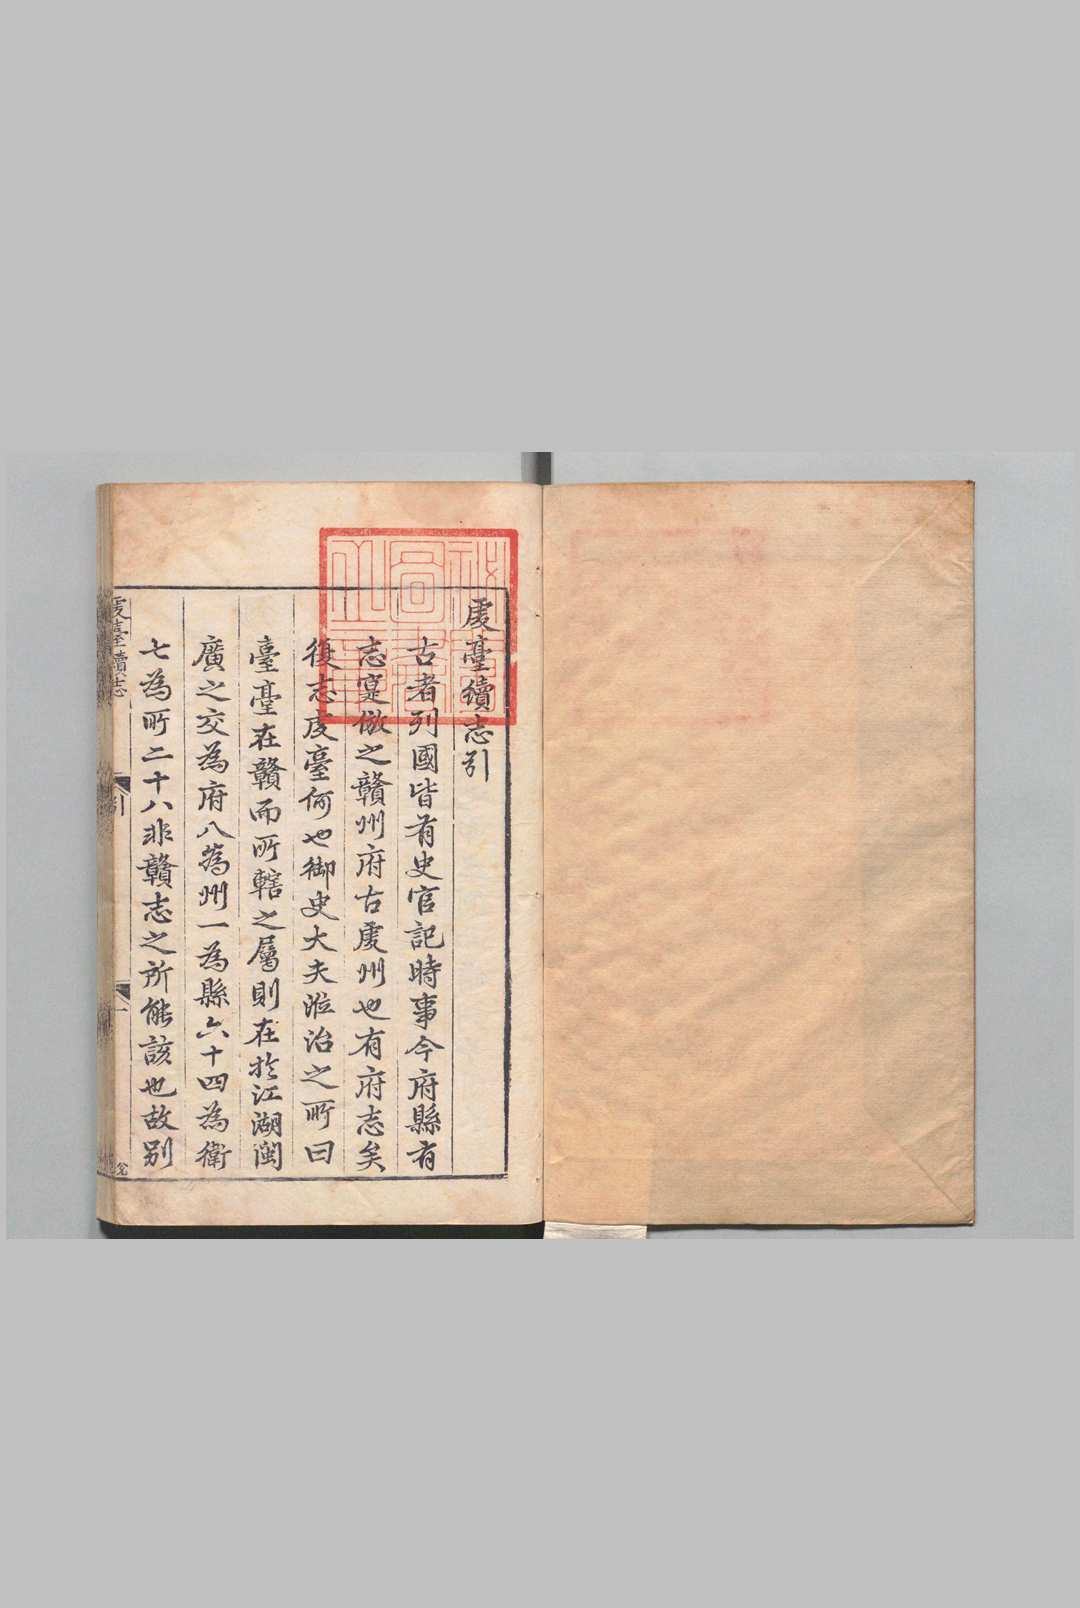 虔臺續志引
古者列國皆有史官記時事今府縣有
志寔倣之贛州府古虔州也有府志矣
復志虔臺何也御史大夫涖治之所曰
臺臺在贛而所轄之屬則在於江湖閩
廣之交為府八為州一為縣六十四為衛
七為所二十八非贛志之所能該也故別
虔臺續志
引
一